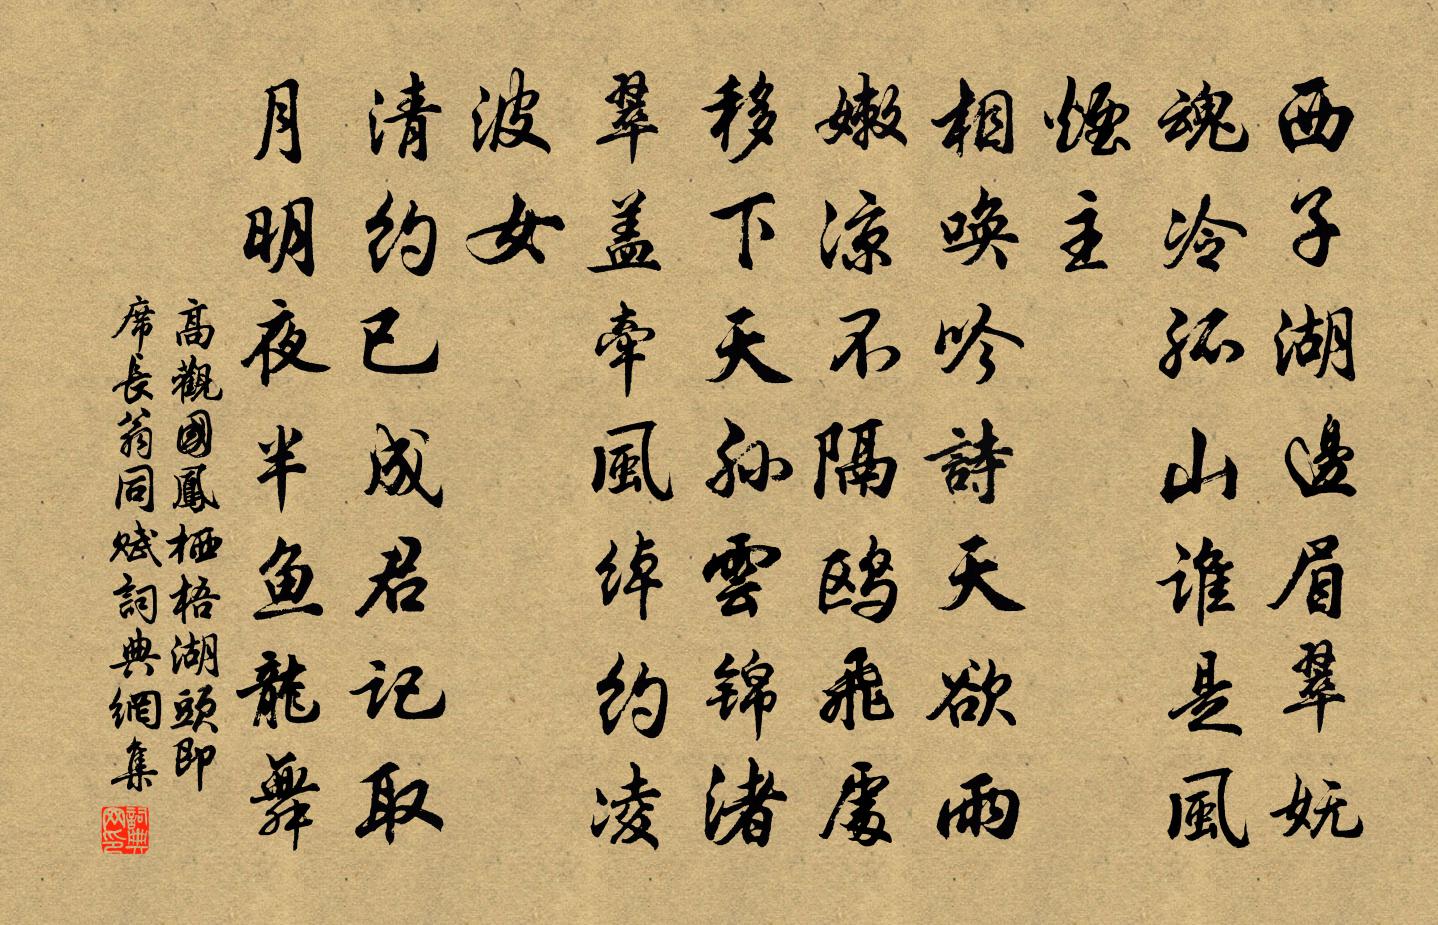 西子湖邊眉翠妩
魂冷孤山谁是風
煙主
相唤吟詩天欲雨
嫩凉不隔鸥飛處
移下天孙雲锦渚
翠盖牵風绰约凌
波女
清约已成君记取
月明夜半鱼龍舞
高觀國鳳栖梧湖頭即
席長翁同赋詞典網集
詞典网印